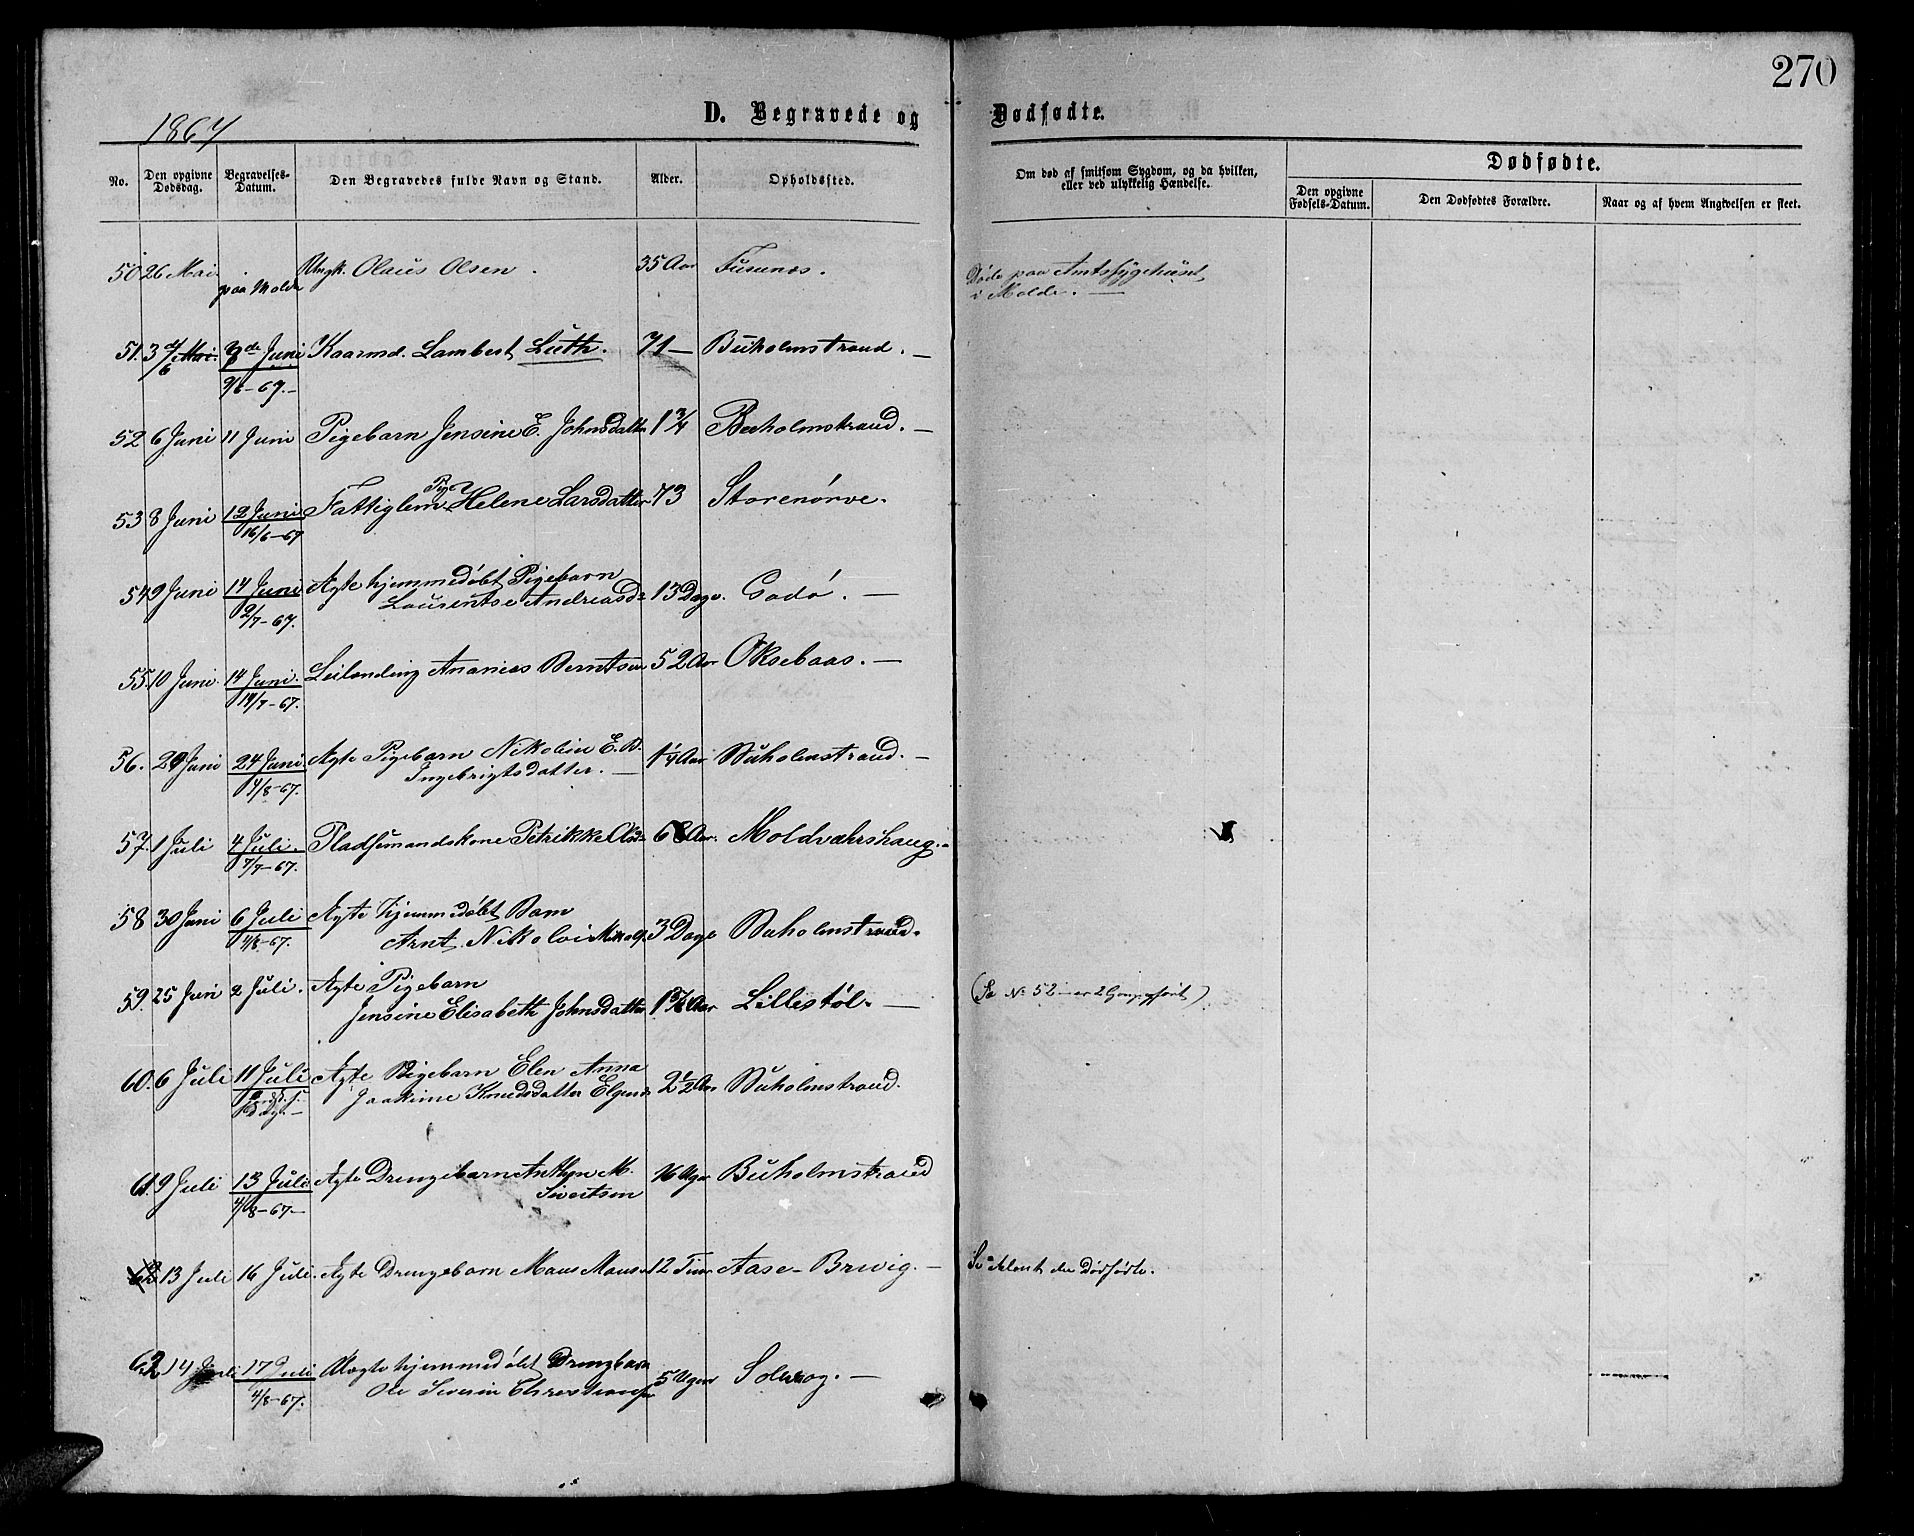 270
1867
D. Begravede og Dødfødte.
No. Den opgivne Dødsdag. Begravelses-Datum. Den Begravedes fulde Navn og Stand. Alder. Opholdssted. Om død af smitsom Sygdom, og da hvilken, eller ved ulykkelig Hændelse. Dødfødte.
Den opgivne Fødsels-Datum. Den Dødfødtes Forældre. Naar og af hvem Angivelsen er skeet.
50 26 Mai paa Molde Ungk. Olaus Olsen. 35 Aar Furunæs. Døde paa Amtssygehuset
i Molde. —
51. 3 Juni Kaarmd. Lambert Lüth. 71 — Buholmstrand. —
9/6 — 67. —
52 6 Juni 11 Juni Pigebarn Jensine E. Johnsdatter 1 3/4 Buholmstrand. —
53 8 Juni 12 Juni Fattiglem Helene Larsdatter 73 Storenørve.
16/6 — 67
54 9 Juni 14 Juni Ægte hjemmedøbt Pigebarn
2/7 — 67. Laurentse Andreasd: 13 Dage. Godø. —
55. 10 Juni. 14 Juni. Leilending Ananias Berntsen 52 Aar Oksebaas. —
14/7 — 67.
56. 20 Juni 24 Juni Ægte Pigebarn Nikoline E. B. 1 1/4 Aar Buholmstrand. —
4/8 — 67. Ingebrigtsdatter. —
57. 1 Juli 4 Juli. Pladsemandskone Petrikke Olsd: 68 Aar. Moldvæhrshaug. —
7/7 — 67.
58 30 Juni 6 Juli Ægte hjemmedøbt Barn
4/8 — 67. Arnt Nikolai 3 Dage Buholmstrand.
59. 25 Juni 2 Juli. Ægte Pigebarn (Se No 52 — er 2 Gange )
Jensine Elisabeth Johnsdatter 1 3/4 Aar Lillestøl. —
60. 6 Juli 11 Juli Ægte Pigebarn Elen Anna 2 1/2 Aar Buholmstrand.
Joakime Knudsdatter
61. 9 Juli 13 Juli Ægte Drengebarn Anthon M. 16 Uger Buholmstrand
4/8 — 67. — Sivertsen
13 Juli 16 Juli. Ægte Drengebarn Maus 12 Timer Aase — Brvig. — Se blant de Dødfødte.
62 14 Juli 17 Juli Uægte hjemmedøbt Drengbarn
4/8 — 67. Ole Severin 5 Uger —